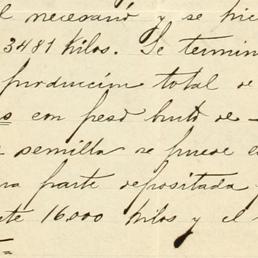 l necesario y se hic
3481 Kilos. Se termin
producción total de
s con peso bruto de
semilla se puede e
ra parte depositada
te 16.000 Kilos y el